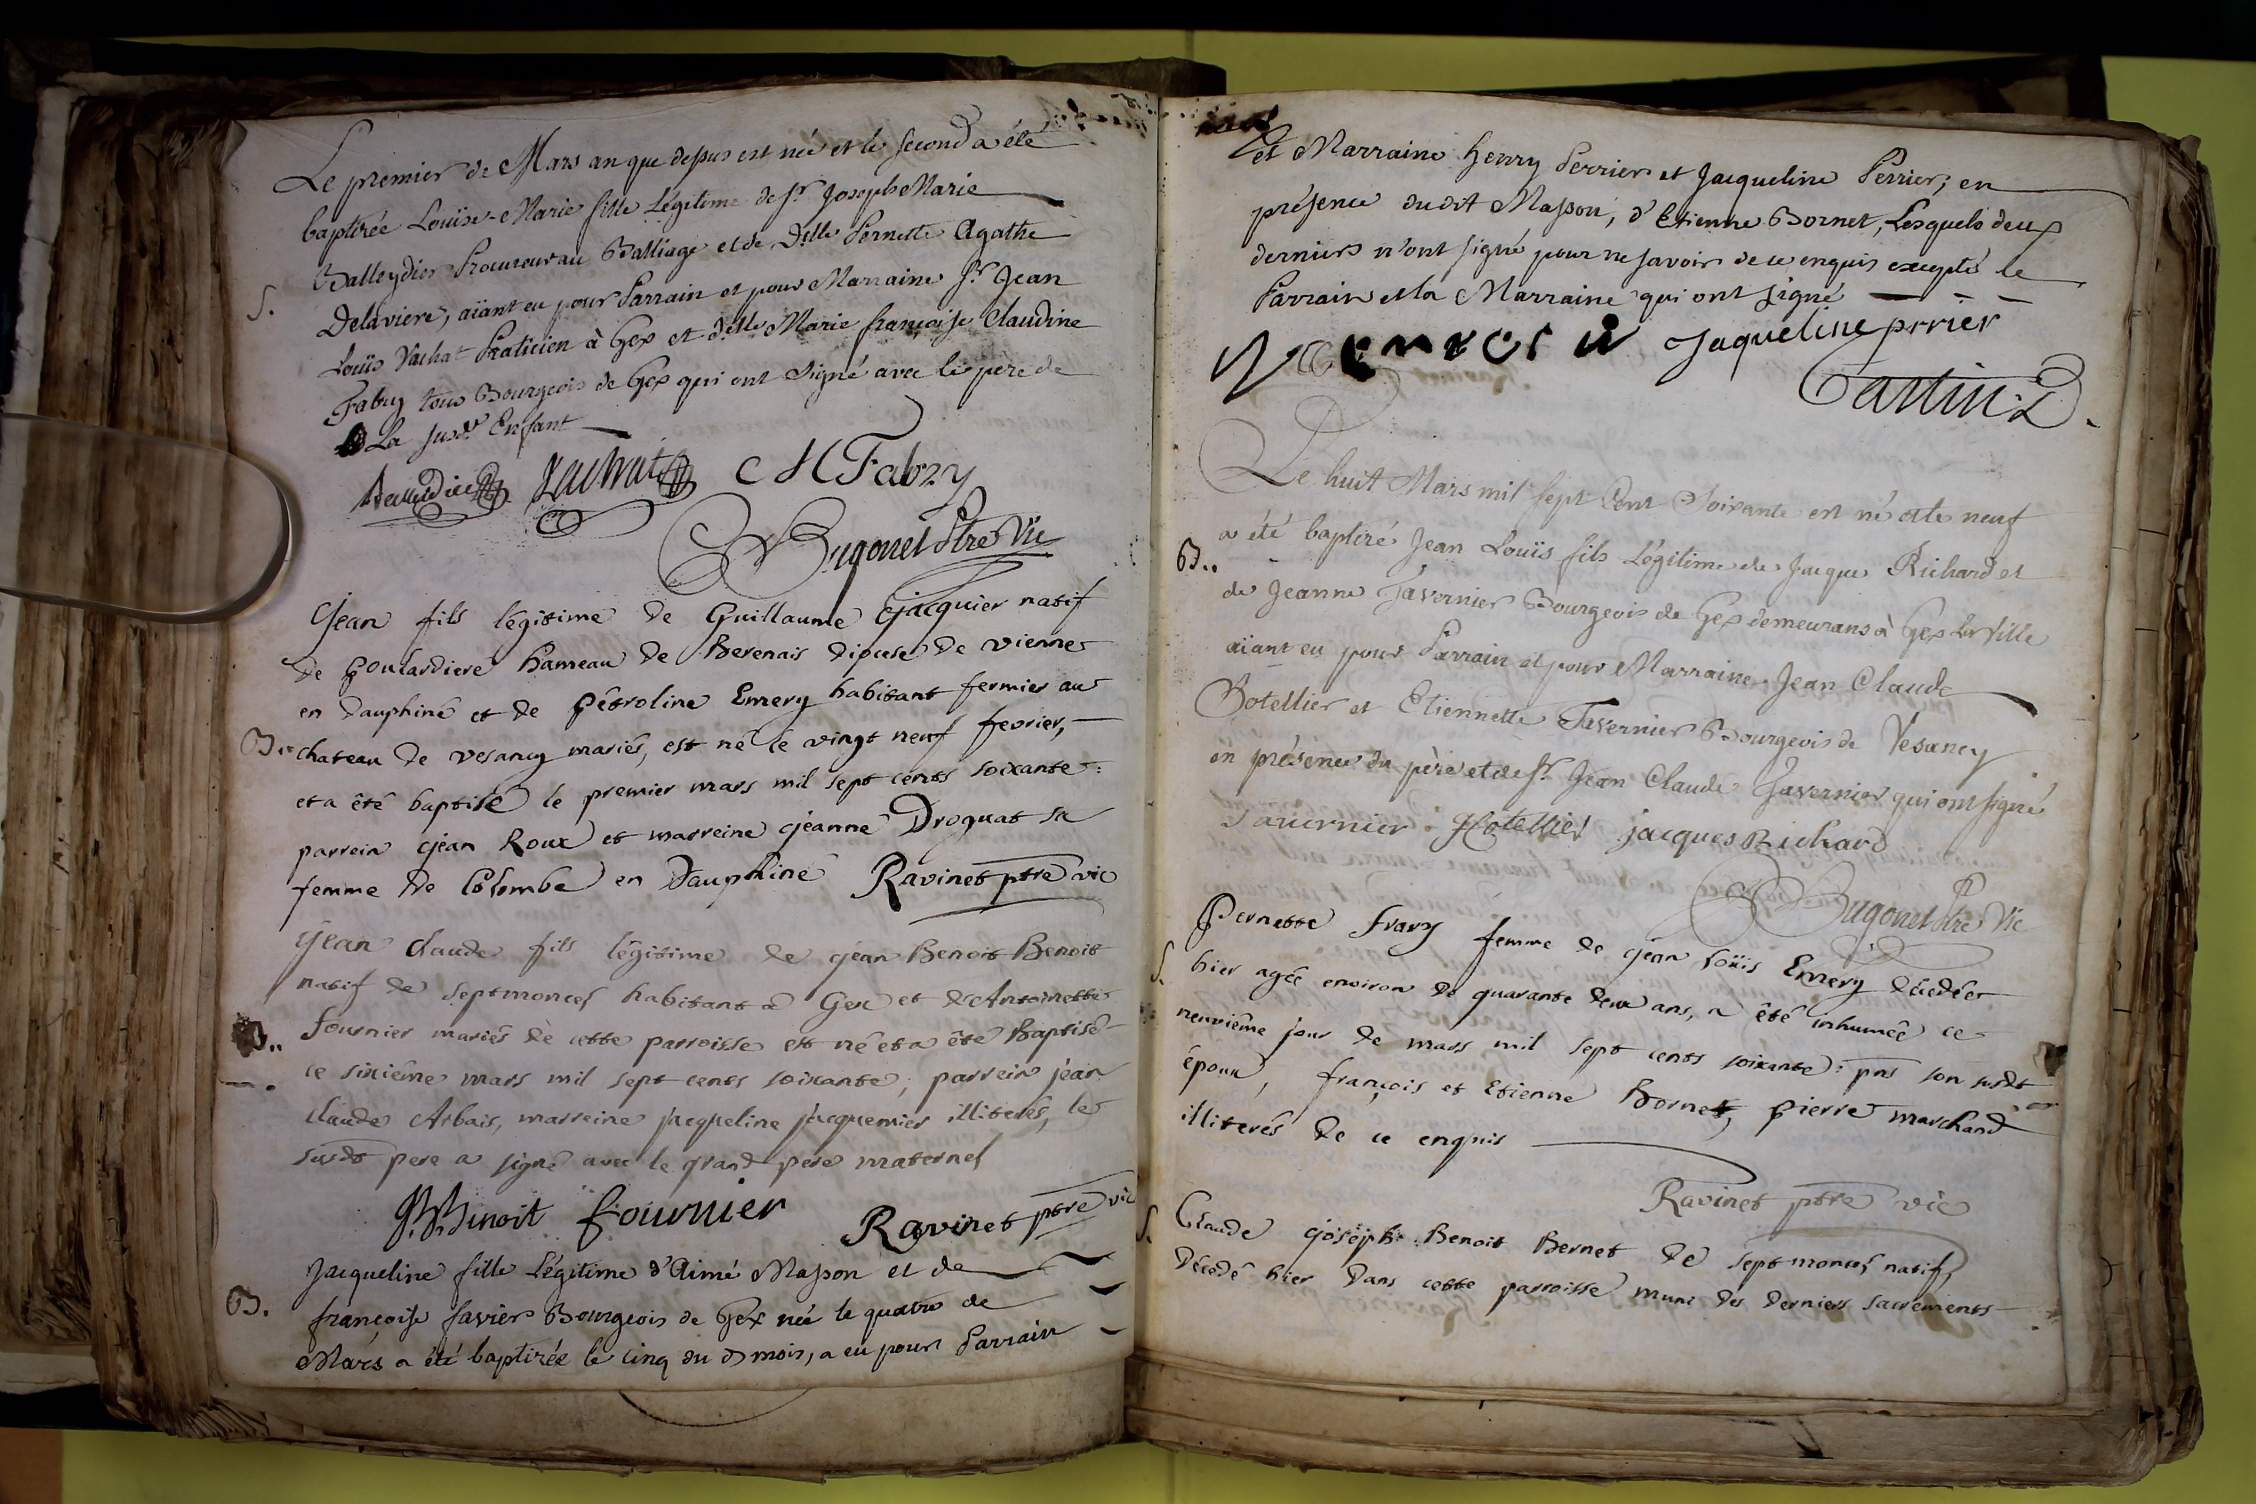 Le premier de Mars an que dessus est née et le second a été
baptizée Louïse-Marie fille Légitime de Sr. Joseph Marie
Balleydier Procureur au Balliage et de Dlle Pernette Agathe
S. Delaviere, aïant eu pour Parrain et pour Marraine Sr. Jean
Louïs Vachat Praticien à Gex et dlle Marie françoise Claudine
Fabry tous Bourgeois de Gex qui ont signé avec le pere de
La susdte Enfant
Balleydier Vachat MC Fabry
Bugonet Ptre Vic
Jean fils légitime de Guillaume Jacquier natif
de Goulardiere hameau de Berenais diouse de vienne
en dauphiné et de Pétroline Emery habitant fermier au
B.. chateau de vesancy mariés, est né le vingt neuf fevrier,
et a êté baptisé le premier mars mil sept cents soixante:
parrein Jean Roux et marreine Jeanne Droguat sa
femme de Colombe en Dauphiné Ravinet ptre vic
Jean Claude fils légitime de Jean Benoit Benoit
natif de septmoncel habitant à Gex et d'Antoinette
B.. fournier mariés de cette parroisse est né et a êté Baptisé
ce sixiême mars mil sept cents soixante; parrein jean
claude Arbais, marreine jacqueline jacquemier illiterés, le
susdt pere a signé avec le grand pere maternel
J.B. Binoit fournier Ravinet ptre vic
Jacqueline fille Légitime d'Aimé Masson et de
B. françoise favier Bourgeois de Gex née le quatre de
Mars a été baptizée le cinq du d mois, a eu pour Parrain
et Marraine henry Perrier et Jacqueline Perrier; en
présence dudit Masson, d'Etienne Bornet, Lesquels deux
derniers n'ont signé pour ne savoir de ce enquis excepté le
Parrain et la Marraine qui ont signé
Jaqueline prrier
Le huit Mars mil sept Cent Soixante est né et le neuf
a été baptizé Jean Louïs fils Légitime de Jacque Richard et
B.. de Jeanne Tavernier Bourgeois de Gex demeurans à Gex la Ville
aïant eu pour Parrain et pour Marraine Jean Claude
Botellier et Etiennette Tavernier Bourgeois de Vesancy
en présence du père et de Sr. Jean Claude Tavernier qui ont signé
Tavernier Botellier jacques Richard
Bugonet Ptre Vic
Pernette frary femme de Jean Loüis Emery décedée
S. hier agée environ de quarante deux ans, a êté inhumée ce
neuviême jour de mars mil sept cents soixante: pnt son susdt
époux, françois et Etienne Bornet, pierre marchand
illiterés de ce enquis
Ravinet ptre vic
S. Claude Joseph Benoit Bernet de septmoncel natif,
décedé hier dans cette parroisse muni des derniers sacrements